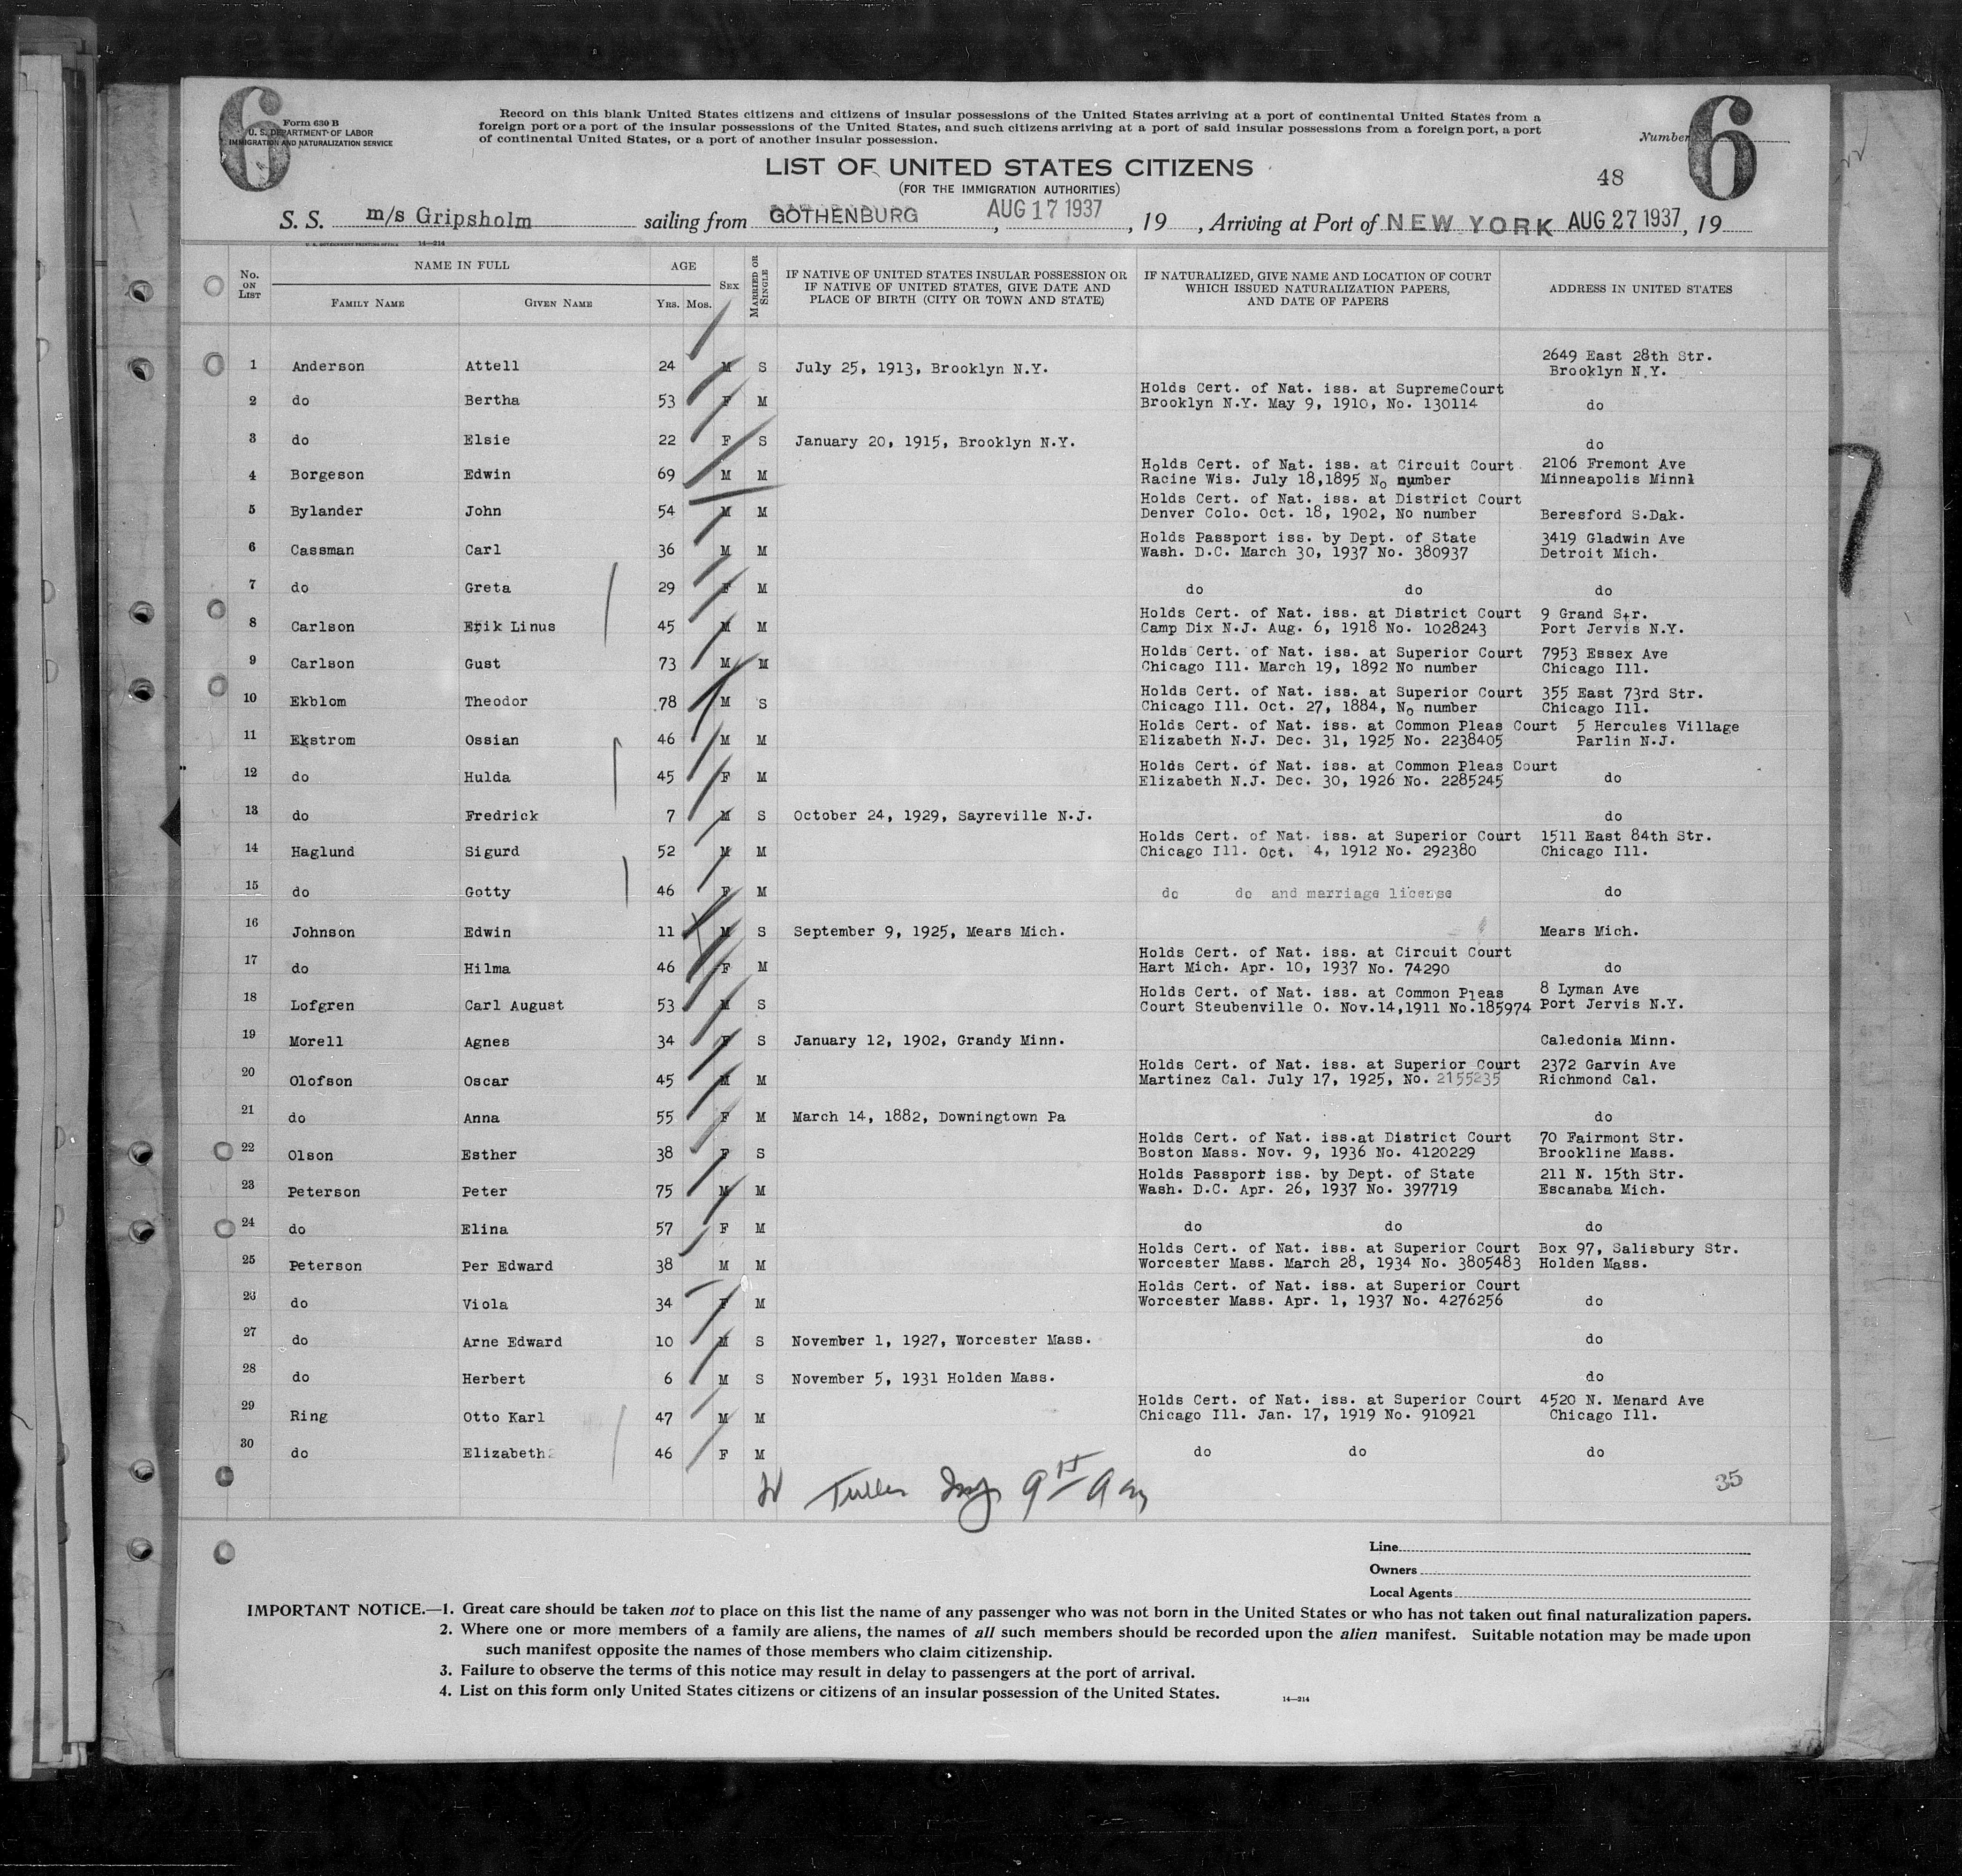 6
Form 630 B
U. S. DEPARTMENT OF LABOR
IMMIGRATION AND NATURALIZATION SERVICE
Record on this blank United States citizens and citizens of insular possessions of the United States arriving at a port of continental United States from a
foreign port or a port of the insular possessions of the United States, and such citizens arriving at a port of said insular possessions from a foreign port, a port
of continental United States, or a port of another insular possession.
Number 6
LIST OF UNITED STATES CITIZENS
(FOR THE IMMIGRATION AUTHORITIES)
48
S. S. m/s Gripsholm sailing from GOTHENBURG, AUG 17 1937, 19 , Arriving at Port of NEW YORK AUG 27 1937, 19
U. S. GOVERNMENT PRINTING OFFICE 14—214
No. ON LIST NAME IN FULL AGE SEX MARRIED OR SINGLE IF NATIVE OF UNITED STATES INSULAR POSSESSION OR IF NATIVE OF UNITED STATES, GIVE DATE AND PLACE OF BIRTH (CITY OR TOWN AND STATE) IF NATURALIZED, GIVE NAME AND LOCATION OF COURT WHICH ISSUED NATURALIZATION PAPERS, AND DATE OF PAPERS ADDRESS IN UNITED STATES
FAMILY NAME GIVEN NAME YRS. MOS.
1 Anderson Attell 24 M S July 25, 1913, Brooklyn N.Y. 2649 East 28th Str. Brooklyn N.Y.
2 do Bertha 53 F M Holds Cert. of Nat. iss. at SupremeCourt Brooklyn N.Y. May 9, 1910, No. 130114 do
3 do Elsie 22 F S January 20, 1915, Brooklyn N.Y. do
4 Borgeson Edwin 69 M M Holds Cert. of Nat. iss. at Circuit Court Racine Wis. July 18,1895 No number 2106 Fremont Ave Minneapolis Minnl
5 Bylander John 54 M M Holds Cert. of Nat. iss. at District Court Denver Colo. Oct. 18, 1902, No number Beresford S.Dak.
6 Cassman Carl 36 M M Holds Passport iss. by Dept. of State Wash. D.C. March 30, 1937 No. 380937 3419 Gladwin Ave Detroit Mich.
7 do Greta 29 F M do do do
8 Carlson Erik Linus 45 M M Holds Cert. of Nat. iss. at District Court Camp Dix N.J. Aug. 6, 1918 No. 1028243 9 Grand Str. Port Jervis N.Y.
9 Carlson Gust 73 M M Holds Cert. of Nat. iss. at Superior Court Chicago Ill. March 19, 1892 No number 7953 Essex Ave Chicago Ill.
10 Ekblom Theodor 78 M S Holds Cert. of Nat. iss. at Superior Court Chicago Ill. Oct. 27, 1884, No number 355 East 73rd Str. Chicago Ill.
11 Ekstrom Ossian 46 M M Holds Cert. of Nat. iss. at Common Pleas Court Elizabeth N.J. Dec. 31, 1925 No. 2238405 5 Hercules Village Parlin N.J.
12 do Hulda 45 F M Holds Cert. of Nat. iss. at Common Pleas Court Elizabeth N.J. Dec. 30, 1926 No. 2285245 do
13 do Fredrick 7 M S October 24, 1929, Sayreville N.J. do
14 Haglund Sigurd 52 M M Holds Cert. of Nat. iss. at Superior Court Chicago Ill. Oct. 4, 1912 No. 292380 1511 East 84th Str. Chicago Ill.
15 do Gotty 46 F M do do and marriage license do
16 Johnson Edwin 11 M S September 9, 1925, Mears Mich. Mears Mich.
17 do Hilma 46 F M Holds Cert. of Nat. iss. at Circuit Court Hart Mich. Apr. 10, 1937 No. 74290 do
18 Lofgren Carl August 53 M S Holds Cert. of Nat. iss. at Common Pleas Court Steubenville O. Nov.14,1911 No.185974 8 Lyman Ave Port Jervis N.Y.
19 Morell Agnes 34 F S January 12, 1902, Grandy Minn. Caledonia Minn.
20 Olofson Oscar 45 M M Holds Cert. of Nat. iss. at Superior Court Martinez Cal. July 17, 1925, No. 2155235 2372 Garvin Ave Richmond Cal.
21 do Anna 55 F M March 14, 1882, Downingtown Pa do
22 Olson Esther 38 F S Holds Cert. of Nat. iss.at District Court Boston Mass. Nov. 9, 1936 No. 4120229 70 Fairmont Str. Brookline Mass.
23 Peterson Peter 75 M M Holds Passport iss. by Dept. of State Wash. D.C. Apr. 26, 1937 No. 397719 211 N. 15th Str. Escanaba Mich.
24 do Elina 57 F M do do do
25 Peterson Per Edward 38 M M Holds Cert. of Nat. iss. at Superior Court Worcester Mass. March 28, 1934 No. 3805483 Box 97, Salisbury Str. Holden Mass.
26 do Viola 34 F M Holds Cert. of Nat. iss. at Superior Court Worcester Mass. Apr. 1, 1937 No. 4276256 do
27 do Arne Edward 10 M S November 1, 1927, Worcester Mass. do
28 do Herbert 6 M S November 5, 1931 Holden Mass. do
29 Ring Otto Karl 47 M M Holds Cert. of Nat. iss. at Superior Court Chicago Ill. Jan. 17, 1919 No. 910921 4520 N. Menard Ave Chicago Ill.
30 do Elizabeth 46 F M do do do
35
Line
Owners
Local Agents
IMPORTANT NOTICE.—1. Great care should be taken not to place on this list the name of any passenger who was not born in the United States or who has not taken out final naturalization papers.
2. Where one or more members of a family are aliens, the names of all such members should be recorded upon the alien manifest. Suitable notation may be made upon
such manifest opposite the names of those members who claim citizenship.
3. Failure to observe the terms of this notice may result in delay to passengers at the port of arrival.
4. List on this form only United States citizens or citizens of an insular possession of the United States. 14—214